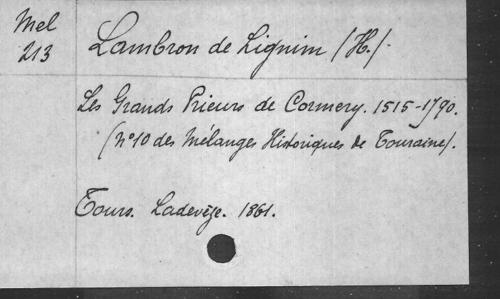 Mel
213
Lambron de Lignim (H.).
Les Grands Prieurs de Cormery. 1515-1790.
(nº10 des Mélanges Historiques de Touraine).
Tours. Ladevèze. 1861.